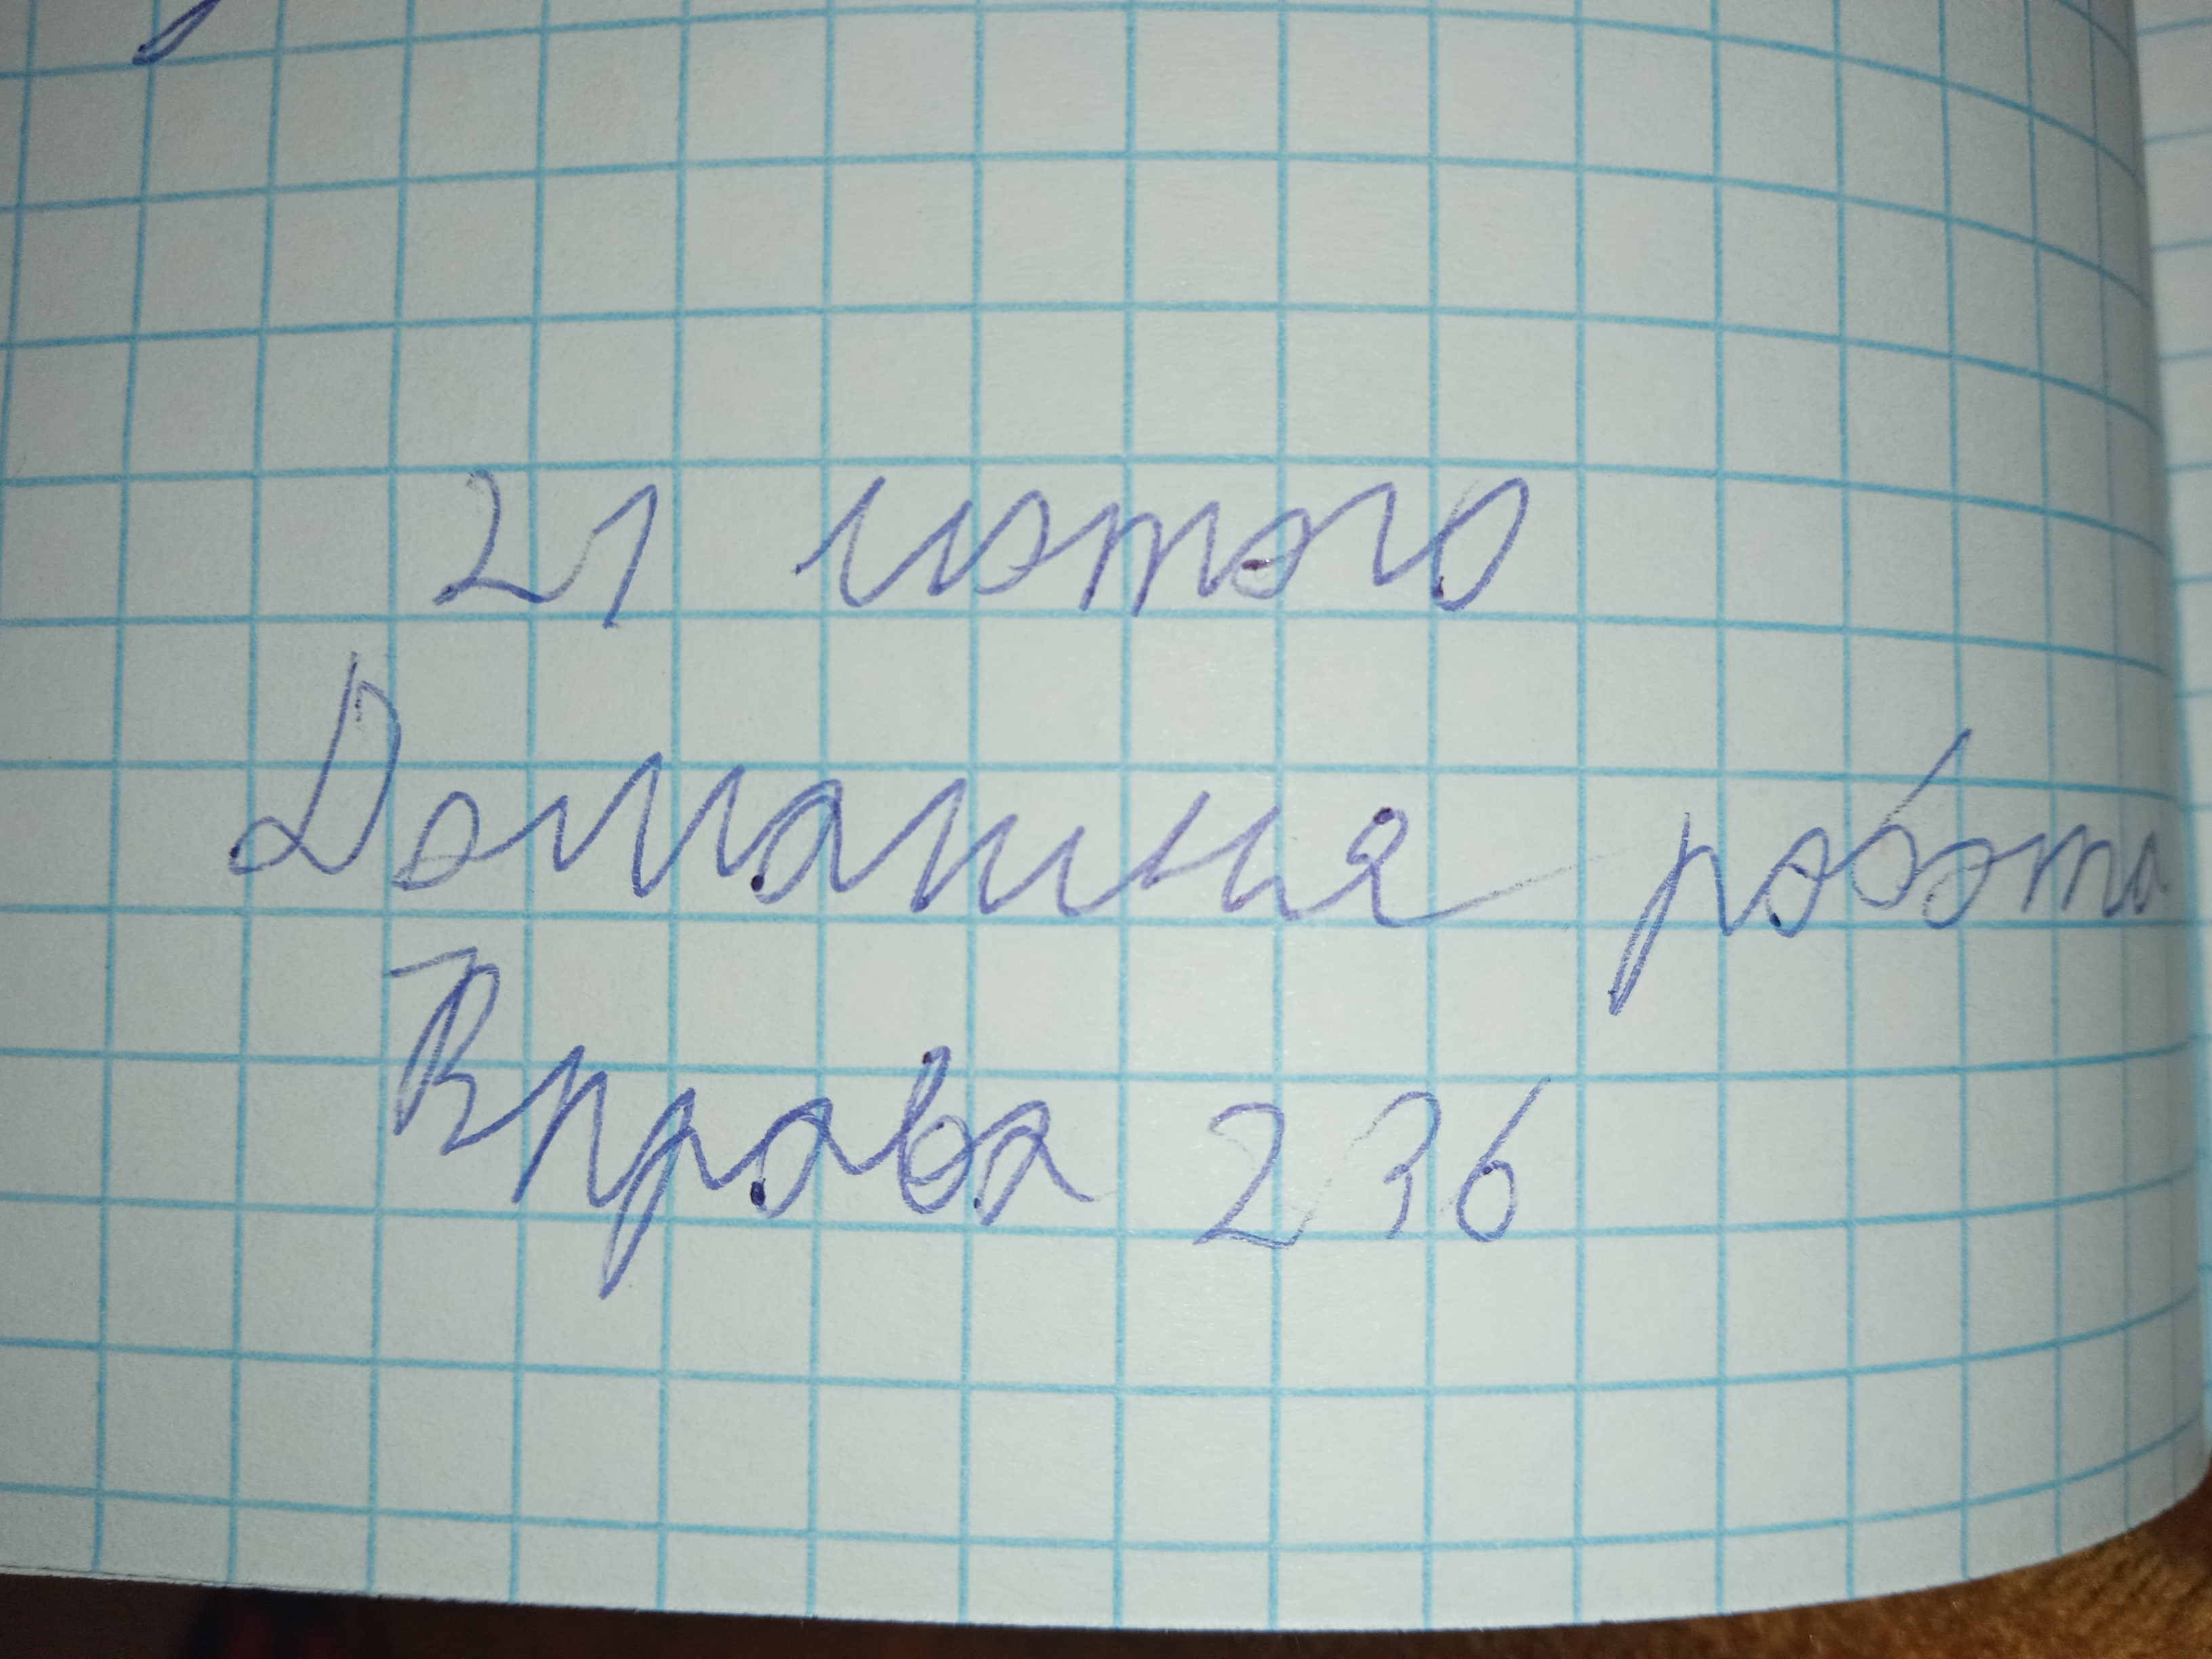 21 лютого
Домашня робота
Вправа 236